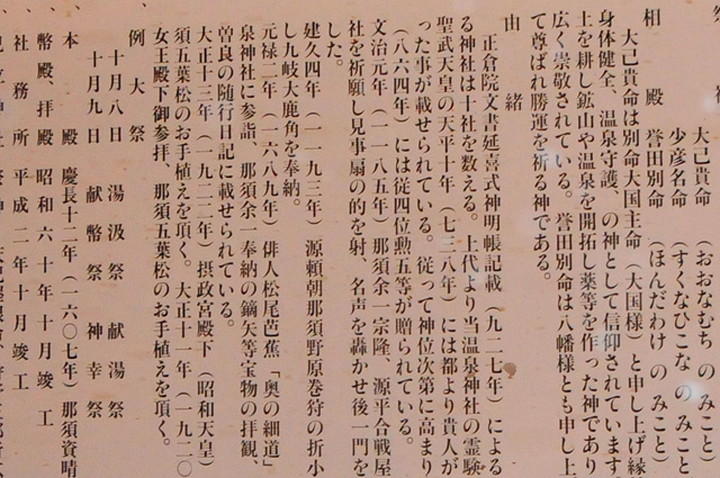 大己貴命 (おおなむち のみこと)
少彦名命 (すくなひこな のみこと)
相殿 誉田別命 (ほんだわけ のみこと)
大己貴命は別命大国主命(大国様)と申し上げ縁
身体健全、温泉守護、の神として信仰されています
土を耕し鉱山や温泉を開拓し薬等を作った神であり
広く崇敬されている。誉田別命は八幡様とも申し上
て尊ばれ勝運を祈る神である。
由緒
正倉院文書延喜式神明帳記載(九二七年)による
る神社は十社を数える。上代より当温泉神社の霊験
聖武天皇の天平十年(七三八年)には都より貴人が
った事が載せられている。従って神位次第に高まり
(八六四年)には従四位勲五等が贈られている。
文治元年(一一八五年)那須余一宗隆、源平合戦屋
社を祈願し見事扇の的を射、名声を轟かせ後一門を
した。
建久四年(一一九三年)源頼朝那須野原巻狩の折小
し九岐大鹿角を奉納。
元禄二年(一六八九年)俳人松尾芭蕉「奥の細道」
泉神社に参詣、那須余一奉納の鏑矢等宝物の拝観、
曽良の随行日記に載せられている。
大正十三年(一九二二年)摂政宮殿下(昭和天皇)
須五葉松のお手植えを頂く。大正十一年(一九二〇
女王殿下御参拝、那須五葉松のお手植えを頂く。
例大祭
十月八日 湯汲祭 献湯祭
十月九日 献幣祭 神幸祭
本殿 慶長十二年(一六〇七年)那須資晴
幣殿、拝殿 昭和六十年十月竣工
社務所 平成二年十月竣工